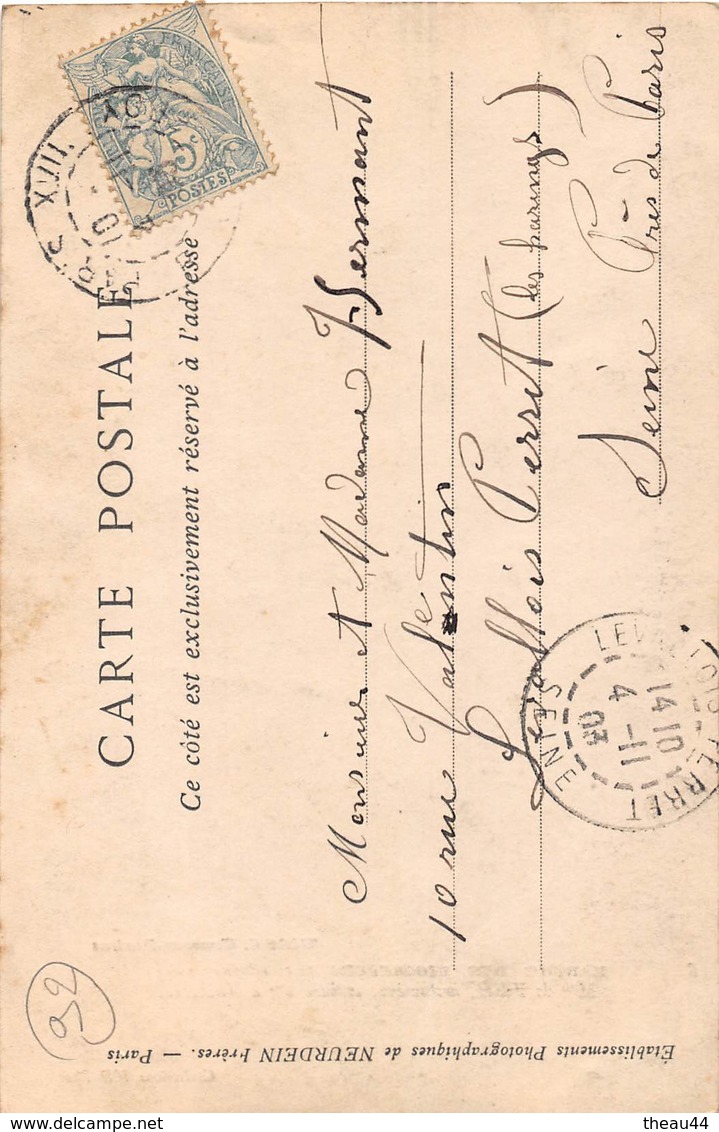 CARTE POSTALE
Ce côté est exclusivement réservé à l'adresse
FRANÇAISE
5
POSTES
XVIII
Monsieur et Madame Hermant
10 rue Valentin
Levallois Perret (les harengs)
Seine Près de Paris
LEVALLOIS-PERRET
14 10
4 -11
03
SEINE
Établissements Photographiques de NEURDEIN Frères. — Paris
92
theau44